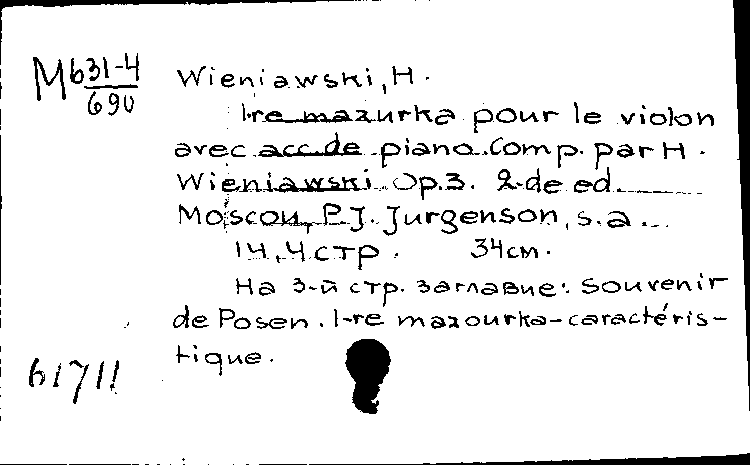 M 631-4
690
Wieniawski, H.
1-re mazurka pour le violon
avec acc. de piano. Comp. par H.
Wieniawski. Op. 3. 2-de ed.
Moscou, P. J. Jurgenson, s. a.
14, 4 стр. 34 см.
На 3-й стр. заглавие: Souvenir
de Posen. 1-re mazourka-caractéris-
tique.
61711